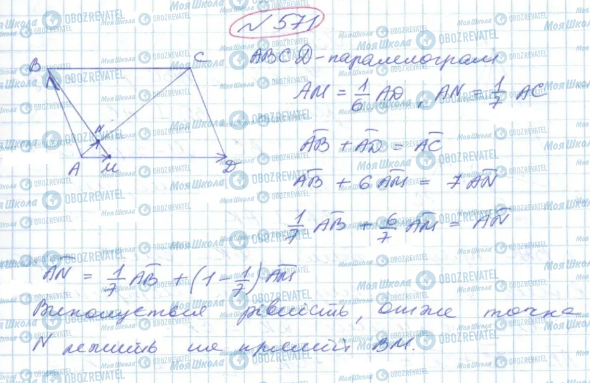 № 571
ABCD - паралелограм
AM = 1/6 AD, AN = 1/7 AC
AB + AD = AC
AB + 6 AM = 7 AN
1/7 AB + 6/7 AM = AN
AN = 1/7 AB + (1 - 1/7) AM
Виконується рівність, отже точка
N лежить на прямій BM.
B C
N
A M D
Моя Школа
OBOZREVATEL